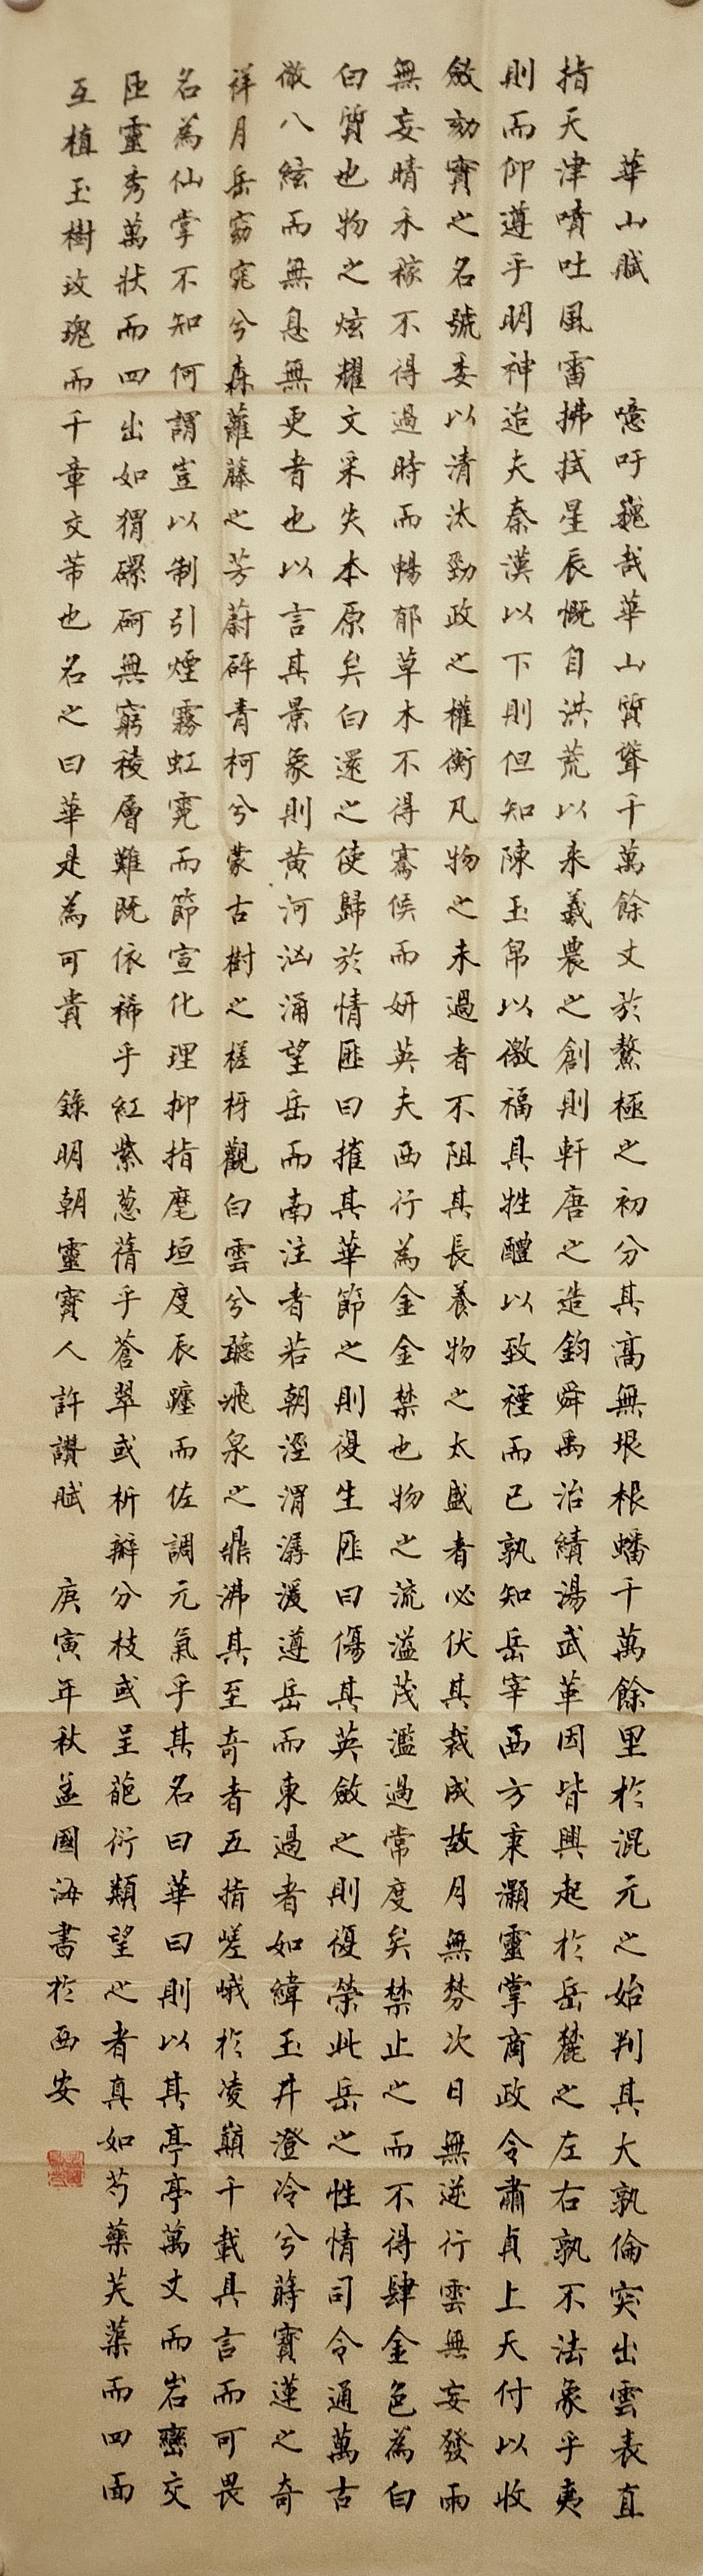 華山賦 噫吁巍哉華山質聳千萬餘丈於鰲極之初分其高無垠根蟠千萬餘里於混元之始判其大孰倫突出雲表直
指天津噴吐風雷拂拭星辰慨自洪荒以来羲農之創則軒唐之造鈞舜禹治績湯武革因皆興起於岳麓之左右孰不法象乎夷
則而仰遵乎明神迨夫秦漢以下則但知陳玉帛以徼福具牲醴以致禋而已孰知岳宰西方秉灝靈掌商政令肅貞上天付以收
斂劾實之名號委以清汰勁政之權衡凡物之未過者不阻其長養物之太盛者必伏其裁成故月無棼次日無逆行雲無妄發雨
無妄晴禾稼不得過時而暢郁草木不得騫候而妍英夫西行為金金禁也物之流溢茂濫過常度矣禁止之而不得肆金色為白
白質也物之炫耀文采失本原矣白還之使歸於情匪曰摧其華節之則復生匪曰傷其英斂之則復榮此岳之性情司令通萬古
徹八紘而無息無更者也以言其景象則黃河汹涌望岳而南注者若朝涇渭潺湲遵岳而東過者如緯玉井澄冷兮蒔寶蓮之奇
祥月岳窈窕兮森蘿藤之芳蔚砰青柯兮蒙古樹之槎枒觀白雲兮聽飛泉之鼎沸其至奇者五指嵯峨於凌巔千載具言而可畏
名為仙掌不知何謂豈以制引煙霧虹霓而節宣化理抑指麾垣度辰躔而佐調元氣乎其名曰華曰則以其亭亭萬丈而岩巒交
匝靈秀萬狀而四出如猬磥砢無窮稜層難既依稀乎紅紫蔥蒨乎蒼翠或析瓣分枝或呈葩衍類望之者真如芍藥芙蕖而四面
互植玉樹玫瑰而千章交芾也名之曰華是為可貴 錄明朝靈寶人許讚賦 庚寅年秋孟國海書於西安